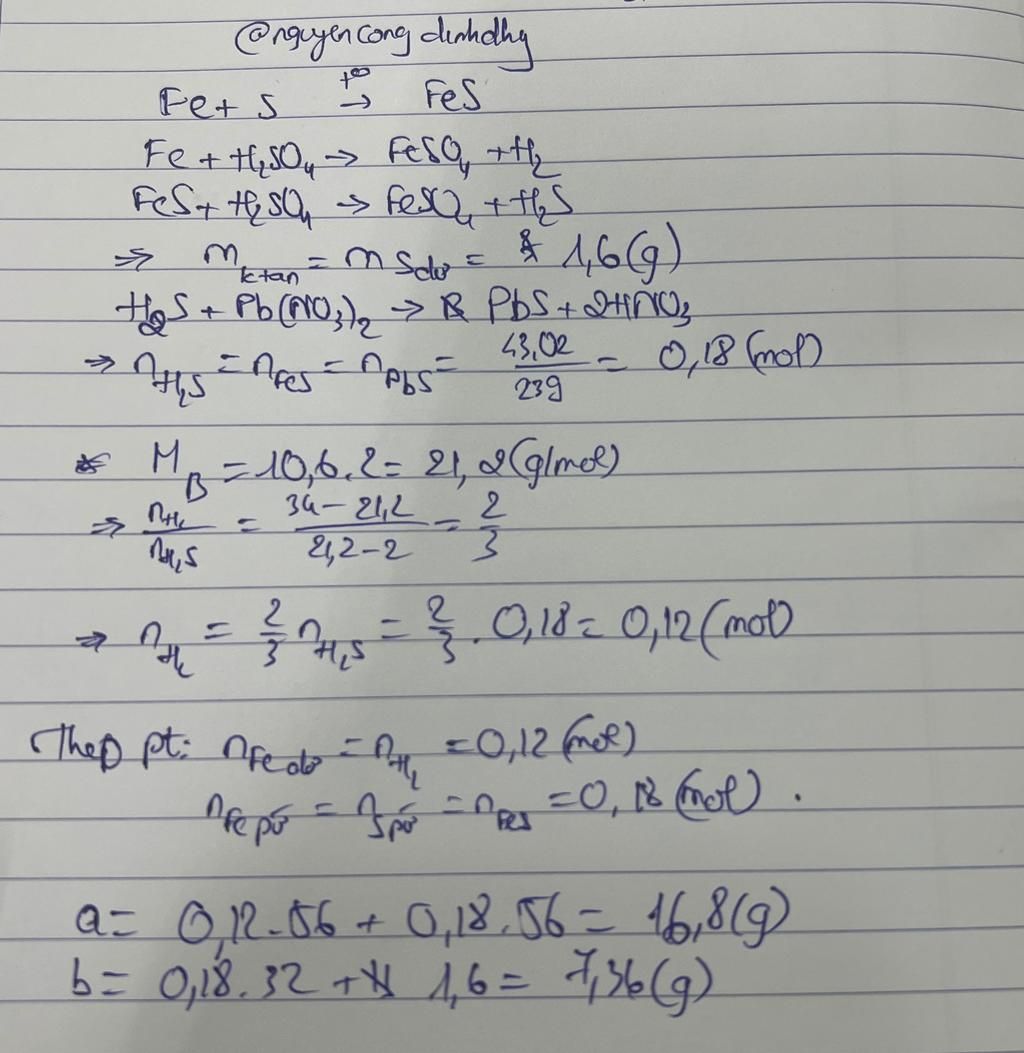 @nguyencongdinhdhy
Fe + S t° → FeS
Fe + H₂SO₄ → FeSO₄ + H₂
FeS + H₂SO₄ → FeSO₄ + H₂S
⇒ m ktan = m S dư = 1,6 (g)
H₂S + Pb(NO₃)₂ → PbS + 2HNO₃
⇒ n H₂S = n FeS = n PbS = 43,02/239 = 0,18 (mol)
* M B = 10,6.2 = 21,2 (g/mol)
⇒ n H₂/n H₂S = (34 - 21,2)/(21,2 - 2) = 2/3
⇒ n H₂ = 2/3 n H₂S = 2/3 . 0,18 = 0,12 (mol)
Theo pt: n Fe dư = n H₂ = 0,12 (mol)
n Fe pứ = n S pứ = n FeS = 0,18 (mol) .
a = 0,12.56 + 0,18.56 = 16,8 (g)
b = 0,18.32 + 1,6 = 7,36 (g)